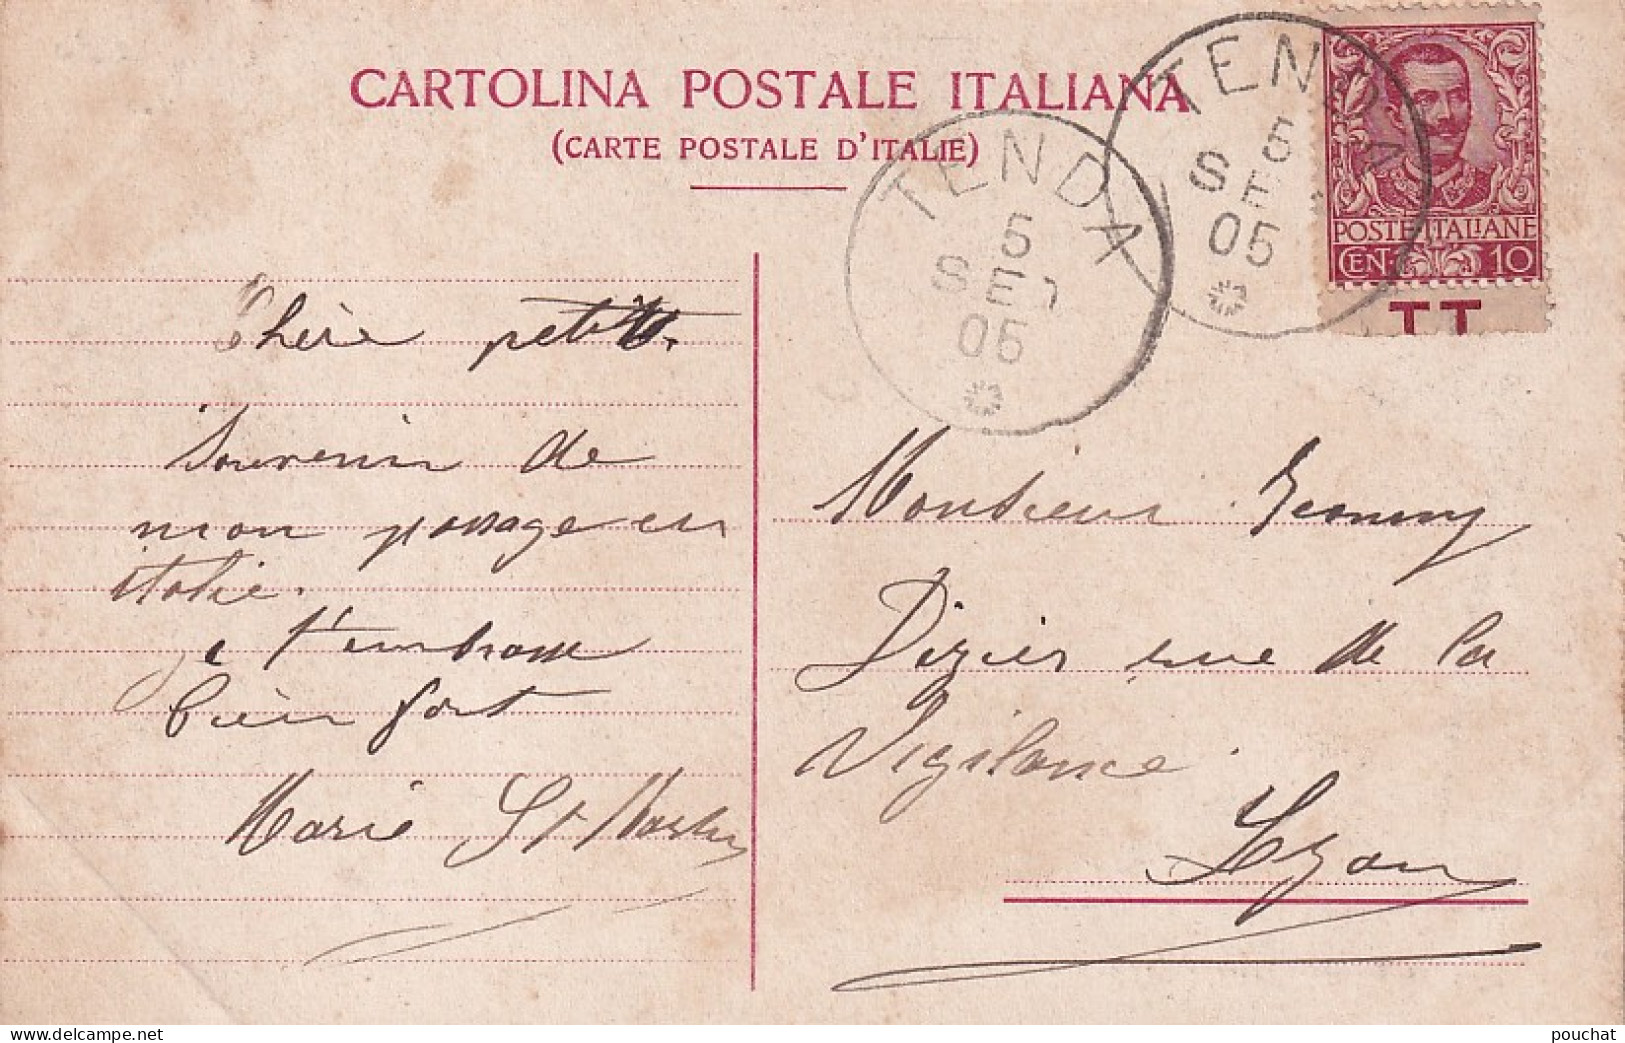 CARTOLINA POSTALE ITALIANA
(CARTE POSTALE D'ITALIE)
TENDA
5
SE
05
TENDA
5
SE
05
POSTE ITALIANE
CENT. 10
TT
Chère petite
Souvenir de
mon passage en
italie.
Je t'embrasse
bien fort
Marie St Martin
Monsieur
Dizier rue de la
Vigilance
Lyon
https://www.delcampe.net
pouchat